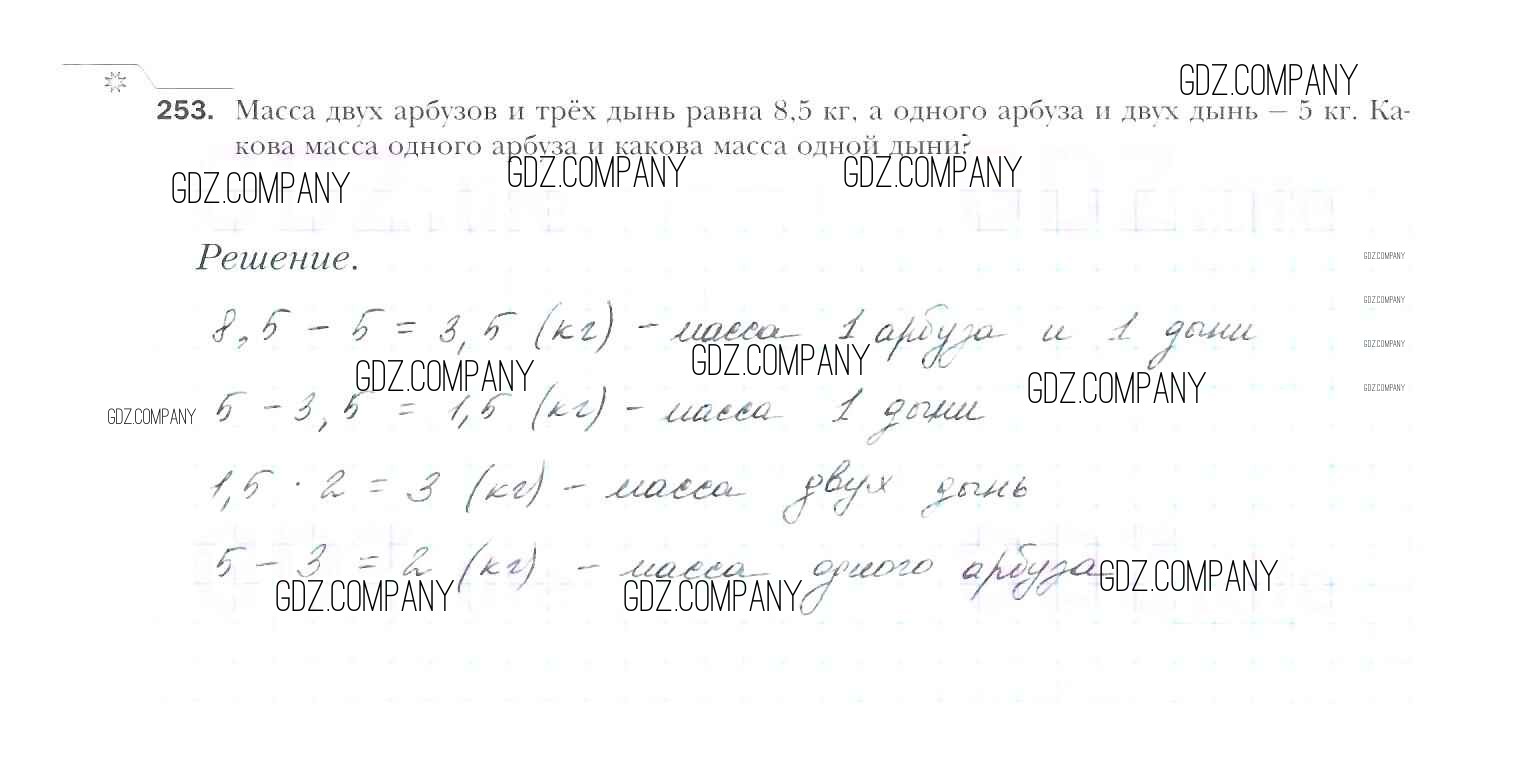 GDZ.COMPANY
253. Масса двух арбузов и трёх дынь равна 8,5 кг, а одного арбуза и двух дынь – 5 кг. Ка-
кова масса одного арбуза и какова масса одной дыни?
GDZ.COMPANY GDZ.COMPANY GDZ.COMPANY
Решение.
GDZ.COMPANY
GDZ.COMPANY
8,5 – 5 = 3,5 (кг) – масса 1 арбуза и 1 дыни
GDZ.COMPANY
GDZ.COMPANY GDZ.COMPANY GDZ.COMPANY
GDZ.COMPANY
GDZ.COMPANY 5 – 3,5 = 1,5 (кг) – масса 1 дыни
1,5 · 2 = 3 (кг) – масса двух дынь
5 – 3 = 2 (кг) – масса одного арбуза
GDZ.COMPANY GDZ.COMPANY GDZ.COMPANY